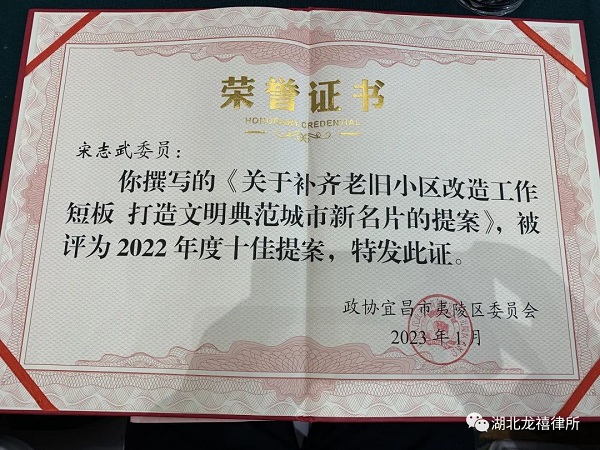 荣誉证书
HONORARY CREDENTIAL
宋志武委员：
你撰写的《关于补齐老旧小区改造工作
短板 打造文明典范城市新名片的提案》，被
评为2022年度十佳提案，特发此证。
政协宜昌市夷陵区委员会
2023年1月
湖北龙禧律所